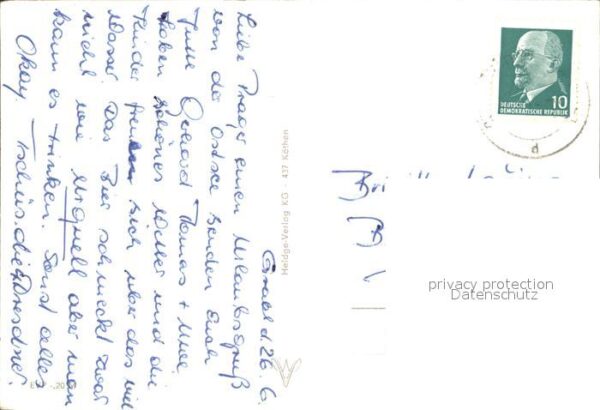 Graal d. 26. 6.
Liebe Prager einen Urlaubsgruß
von der Ostsee senden Euch
Gerhard Thomas + Uwe
haben schönes Wetter und die
Kinder freuen sich über das viel
Wasser. Das Bier schmeckt zwar
nicht wie Urquell aber man
kann es trinken. Sonst alles
Okay. Tschüs. die 4 Dresdner.
Heldge-Verlag KG - 437 Köthen
DEUTSCHE
DEMOKRATISCHE REPUBLIK
10
privacy protection
Datenschutz